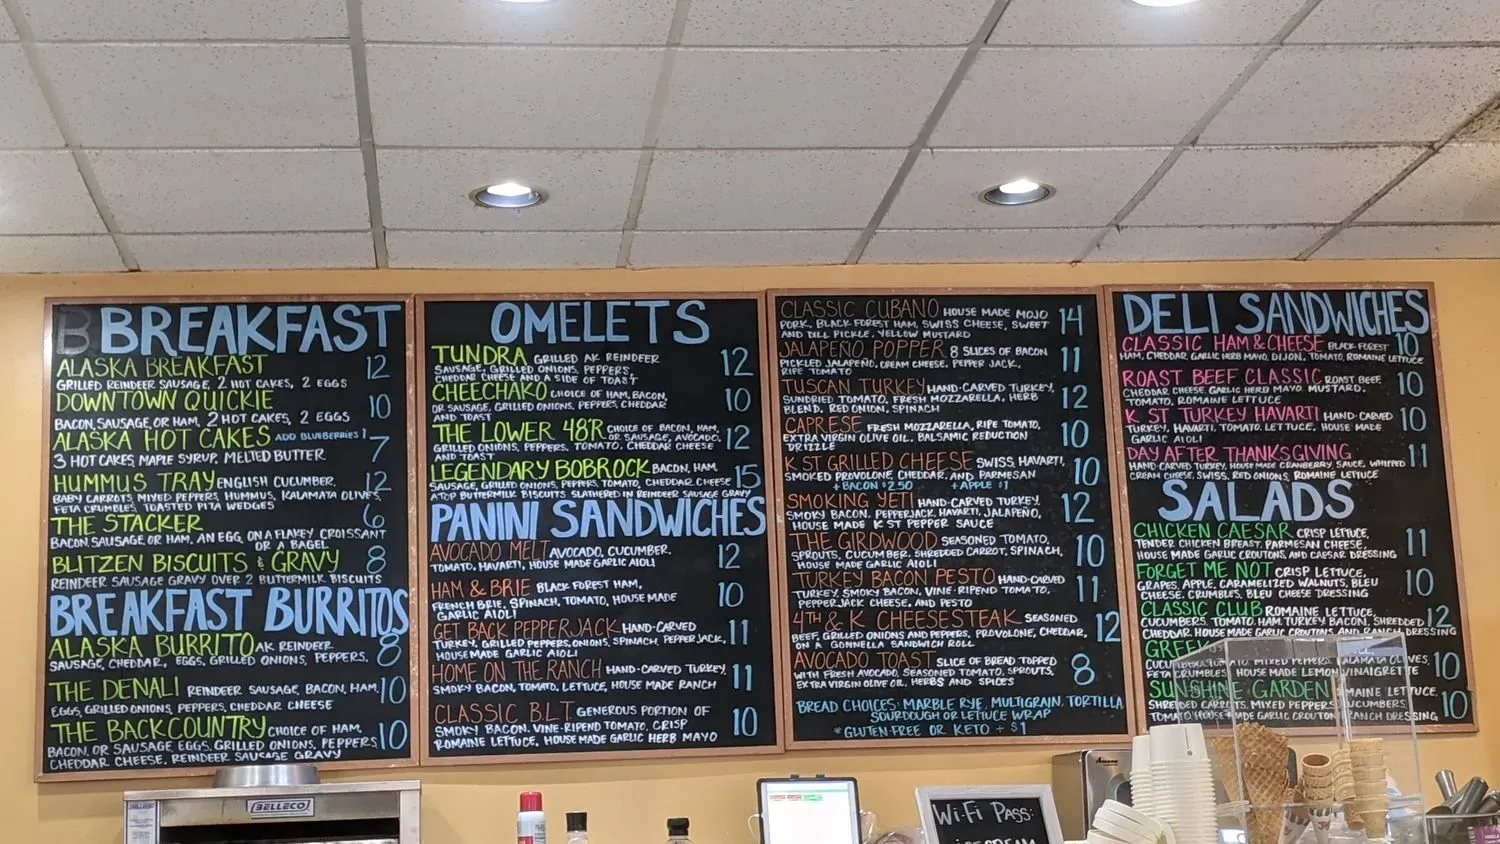 BREAKFAST
ALASKA BREAKFAST 12
GRILLED REINDEER SAUSAGE, 2 HOT CAKES, 2 EGGS
DOWNTOWN QUICKIE 10
BACON, SAUSAGE, OR HAM, 2 HOT CAKES, 2 EGGS
ALASKA HOT CAKES ADD BLUEBERRIES 1 7
3 HOT CAKES, MAPLE SYRUP, MELTED BUTTER
HUMMUS TRAY ENGLISH CUCUMBER, 12
BABY CARROTS, MIXED PEPPERS, HUMMUS, KALAMATA OLIVES,
FETA CRUMBLES, TOASTED PITA WEDGES
THE STACKER 6
BACON, SAUSAGE OR HAM, AN EGG, ON A FLAKEY CROISSANT
OR A BAGEL
BLITZEN BISCUITS & GRAVY 8
REINDEER SAUSAGE GRAVY OVER 2 BUTTERMILK BISCUITS
BREAKFAST BURRITOS
ALASKA BURRITO AK REINDEER 8
SAUSAGE, CHEDDAR, EGGS, GRILLED ONIONS, PEPPERS.
THE DENALI REINDEER SAUSAGE, BACON, HAM, 10
EGGS, GRILLED ONIONS, PEPPERS, CHEDDAR CHEESE
THE BACKCOUNTRY CHOICE OF HAM, 10
BACON, OR SAUSAGE, EGGS, GRILLED ONIONS, PEPPERS,
CHEDDAR CHEESE, REINDEER SAUSAGE GRAVY
OMELETS
TUNDRA GRILLED AK REINDEER 12
SAUSAGE, GRILLED ONIONS, PEPPERS,
CHEDDAR CHEESE AND A SIDE OF TOAST
CHEECHAKO CHOICE OF HAM, BACON, 10
OR SAUSAGE, GRILLED ONIONS, PEPPERS, CHEDDAR
AND TOAST
THE LOWER 48'R CHOICE OF BACON, HAM, 12
OR SAUSAGE, AVOCADO,
GRILLED ONIONS, PEPPERS, TOMATO, CHEDDAR CHEESE
AND TOAST
LEGENDARY BOBROCK BACON, HAM, 15
SAUSAGE, GRILLED ONIONS, PEPPERS, TOMATO, CHEDDAR CHEESE
ATOP BUTTERMILK BISCUITS SLATHERED IN REINDEER SAUSAGE GRAVY
PANINI SANDWICHES
AVOCADO MELT AVOCADO, CUCUMBER, 12
TOMATO, HAVARTI, HOUSE MADE GARLIC AIOLI
HAM & BRIE BLACK FOREST HAM, 10
FRENCH BRIE, SPINACH, TOMATO, HOUSE MADE
GARLIC AIOLI
GET BACK PEPPERJACK HAND-CARVED 11
TURKEY, GRILLED PEPPERS, ONIONS, SPINACH, PEPPER JACK,
HOUSE MADE GARLIC AIOLI
HOME ON THE RANCH HAND-CARVED TURKEY, 11
SMOKY BACON, TOMATO, LETTUCE, HOUSE MADE RANCH
CLASSIC B.L.T. GENEROUS PORTION OF 10
SMOKY BACON, VINE-RIPEND TOMATO, CRISP
ROMAINE LETTUCE, HOUSE MADE GARLIC HERB MAYO
CLASSIC CUBANO HOUSE MADE MOJO 14
PORK, BLACK FOREST HAM, SWISS CHEESE, SWEET
AND DILL PICKLE, YELLOW MUSTARD
JALAPEÑO POPPER 8 SLICES OF BACON 11
PICKLED JALAPEÑO, CREAM CHEESE, PEPPER JACK,
RIPE TOMATO
TUSCAN TURKEY HAND-CARVED TURKEY, 12
SUNDRIED TOMATO, FRESH MOZZARELLA, HERB
BLEND, RED ONION, SPINACH
CAPRESE FRESH MOZZARELLA, RIPE TOMATO, 10
EXTRA VIRGIN OLIVE OIL, BALSAMIC REDUCTION
DRIZZLE
K ST GRILLED CHEESE SWISS, HAVARTI, 10
SMOKED PROVOLONE, CHEDDAR, AND PARMESAN
+ BACON $2.50 + APPLE $1
SMOKING YETI HAND-CARVED TURKEY, 12
SMOKY BACON, PEPPERJACK, HAVARTI, JALAPEÑO,
HOUSE MADE K ST PEPPER SAUCE
THE GIRDWOOD SEASONED TOMATO, 10
SPROUTS, CUCUMBER, SHREDDED CARROT, SPINACH,
HOUSE MADE GARLIC AIOLI
TURKEY BACON PESTO HAND-CARVED 11
TURKEY, SMOKY BACON, VINE-RIPEND TOMATO,
PEPPERJACK CHEESE, AND PESTO
4TH & K CHEESESTEAK SEASONED 12
BEEF, GRILLED ONIONS AND PEPPERS, PROVOLONE, CHEDDAR,
ON A GONNELLA SANDWICH ROLL
AVOCADO TOAST SLICE OF BREAD TOPPED 8
WITH FRESH AVOCADO, SEASONED TOMATO, SPROUTS,
EXTRA VIRGIN OLIVE OIL, HERBS AND SPICES
BREAD CHOICES: MARBLE RYE, MULTIGRAIN, TORTILLA,
SOURDOUGH OR LETTUCE WRAP
*GLUTEN-FREE OR KETO + $1
DELI SANDWICHES
CLASSIC HAM & CHEESE BLACK FOREST 10
HAM, CHEDDAR, GARLIC HERB MAYO, DIJON, TOMATO, ROMAINE LETTUCE
ROAST BEEF CLASSIC ROAST BEEF, 10
CHEDDAR CHEESE, GARLIC HERB MAYO MUSTARD,
TOMATO, ROMAINE LETTUCE
K ST TURKEY HAVARTI HAND-CARVED 10
TURKEY, HAVARTI, TOMATO, LETTUCE, HOUSE MADE
GARLIC AIOLI
DAY AFTER THANKSGIVING 11
HAND-CARVED TURKEY, HOUSE MADE CRANBERRY SAUCE, WHIPPED
CREAM CHEESE, SWISS, RED ONIONS, ROMAINE LETTUCE
SALADS
CHICKEN CAESAR CRISP LETTUCE, 11
TENDER CHICKEN BREAST, PARMESAN CHEESE,
HOUSE MADE GARLIC CROUTONS AND CAESAR DRESSING
FORGET ME NOT CRISP LETTUCE, 10
GRAPES, APPLE, CARAMELIZED WALNUTS, BLEU
CHEESE CRUMBLES, BLEU CHEESE DRESSING
CLASSIC CLUB ROMAINE LETTUCE, 12
CUCUMBERS, TOMATO, HAM, TURKEY, BACON, SHREDDED
CHEDDAR HOUSE MADE GARLIC CROUTONS AND RANCH DRESSING
GREEK 10
MIXED PEPPERS, KALAMATA OLIVES,
FETA CRUMBLES, HOUSE MADE LEMON VINAIGRETTE
SUNSHINE GARDEN ROMAINE LETTUCE, 10
SHREDDED CARROTS, MIXED PEPPERS, CUCUMBERS,
TOMATO, HOUSE MADE GARLIC CROUTONS, RANCH DRESSING
BELLECO
WI-FI PASS: